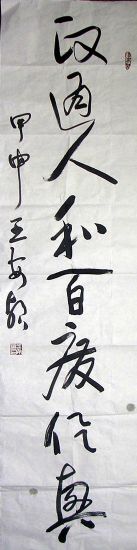 政通人和百废俱興
甲申 王